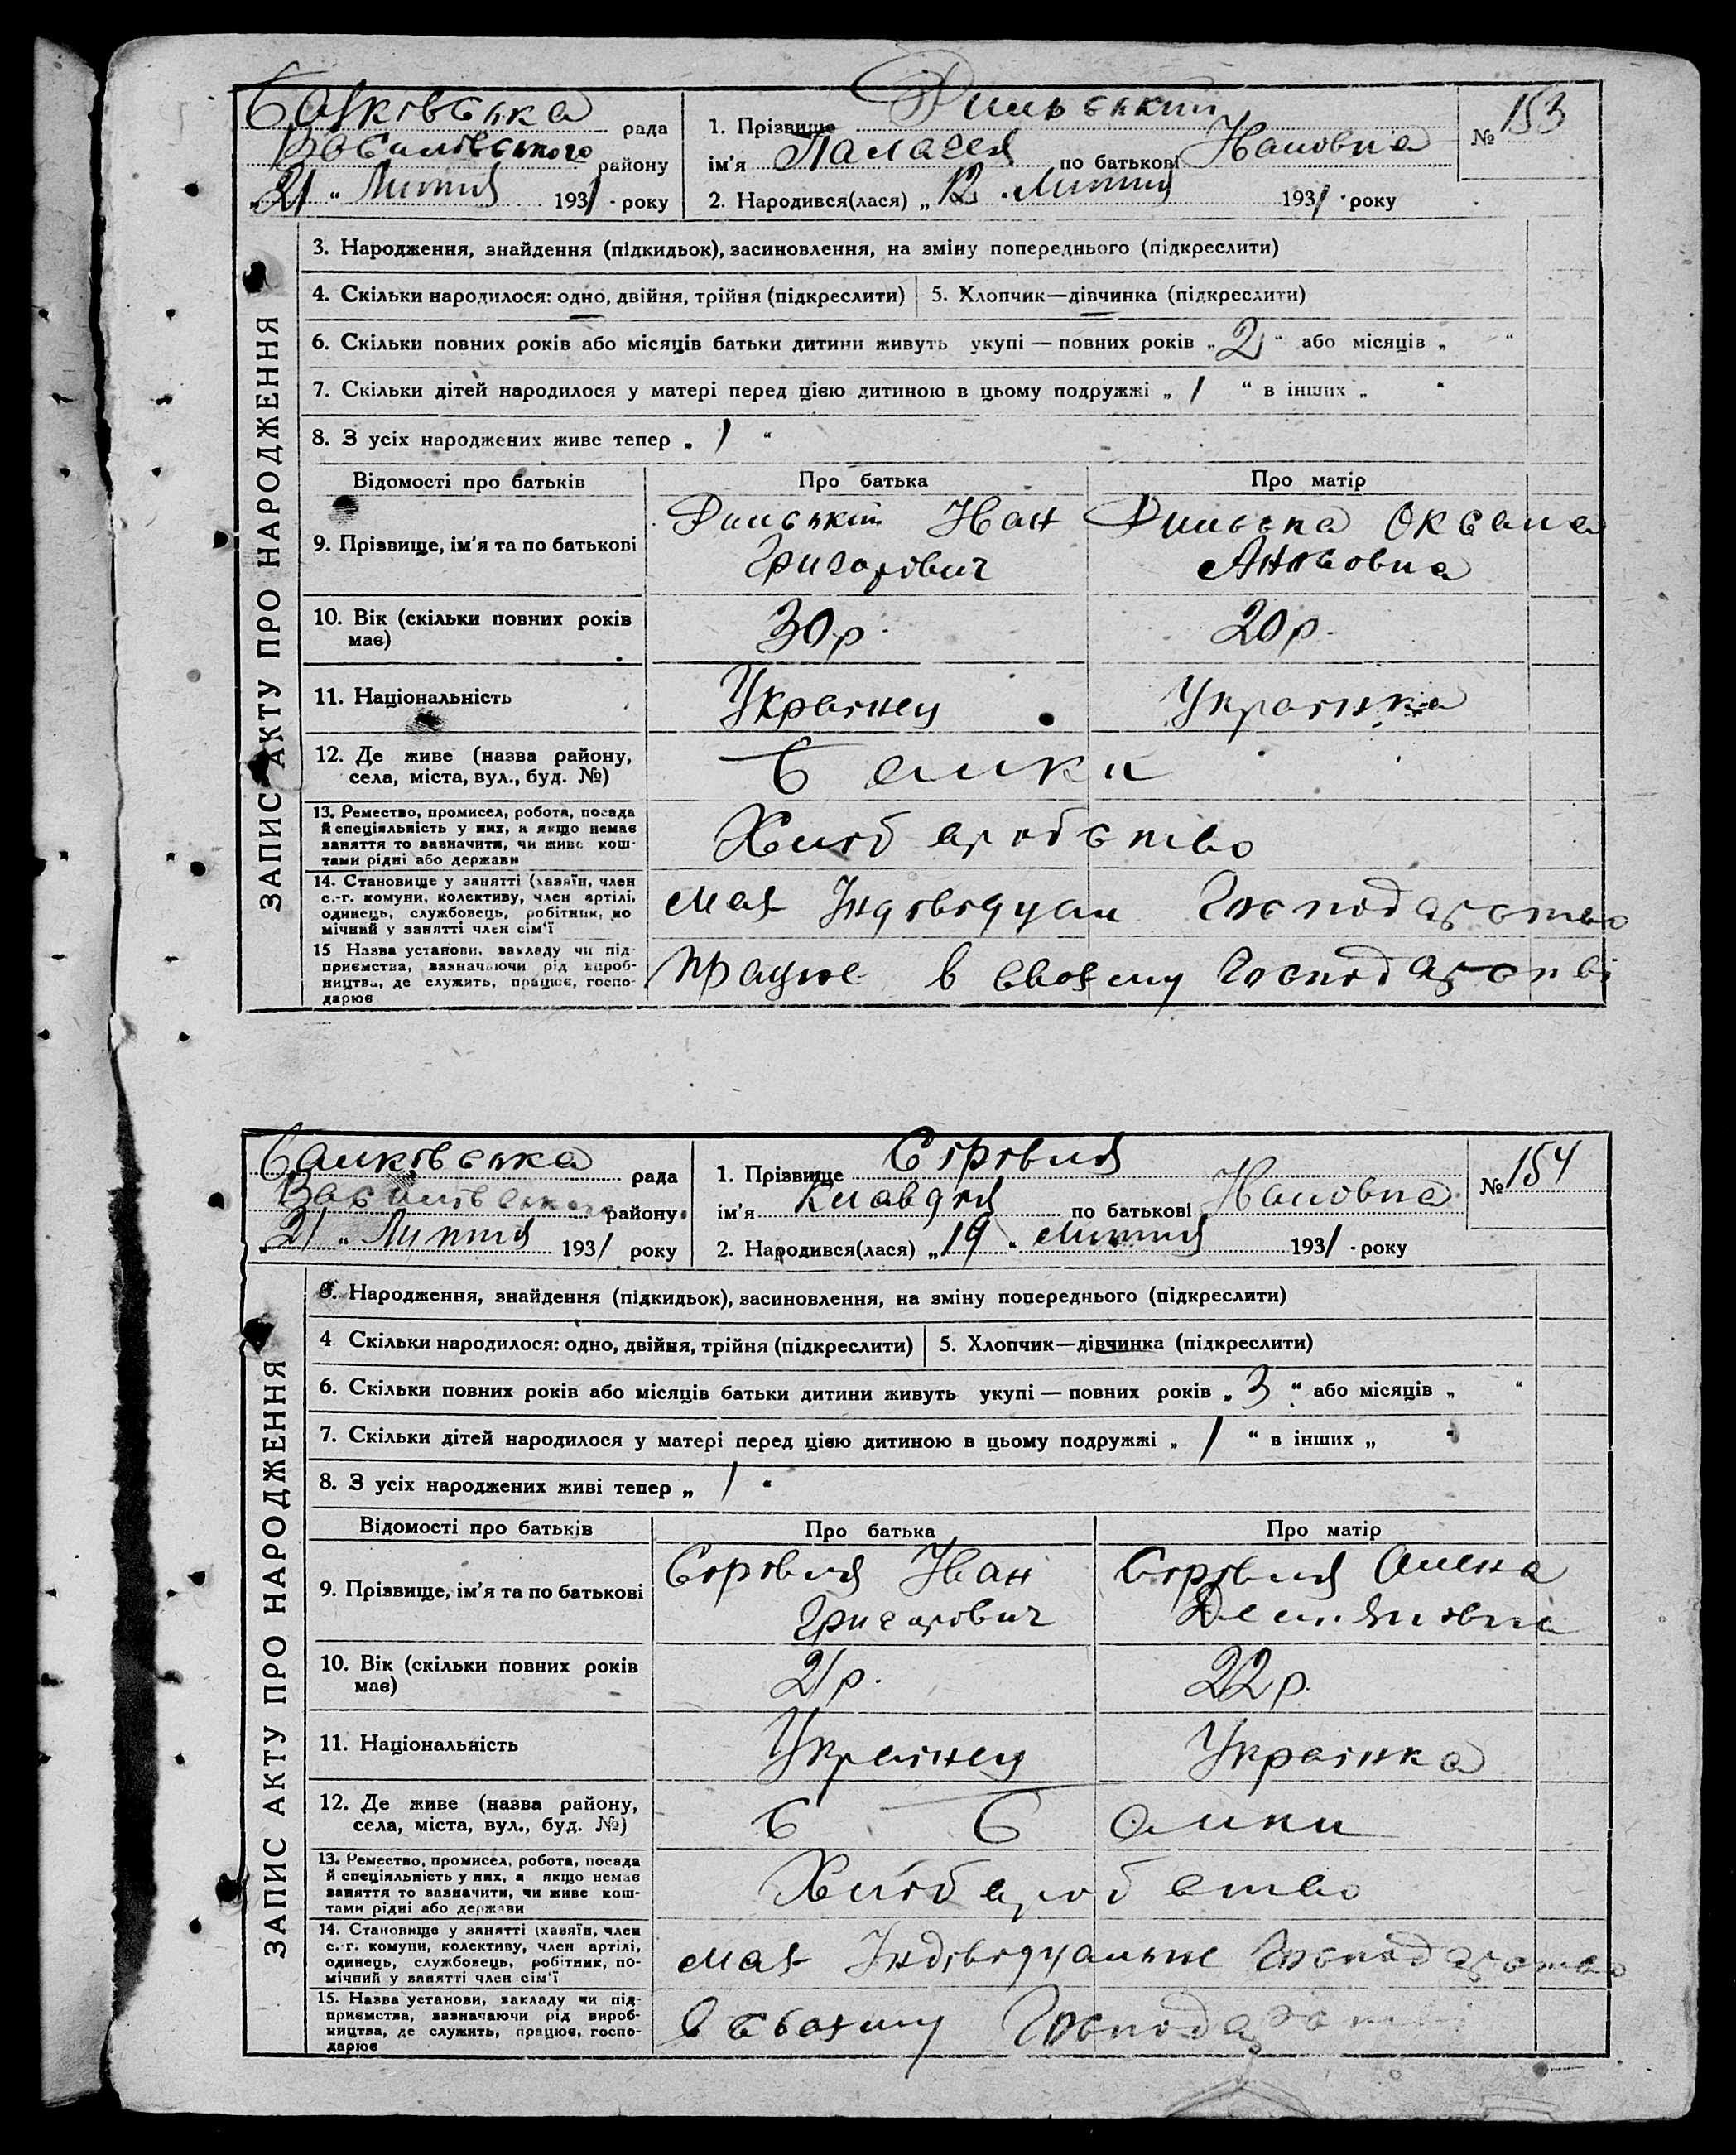 Салковська рада
Василівського району
„21“ Липня 1931 року
1. Прізвище Рильський
ім'я Паласея по батькові Івановна
2. Народився(лася) „12“ Липня 1931 року
№ 153
ЗАПИС АКТУ ПРО НАРОДЖЕННЯ
3. Народження, знайдення (підкидьок), засиновлення, на зміну попереднього (підкреслити)
4. Скільки народилося: одно, двійня, трійня (підкреслити)
5. Хлопчик—дівчинка (підкреслити)
6. Скільки повних років або місяців батьки дитини живуть укупі — повних років „2“ або місяців „ “
7. Скільки дітей народилося у матері перед цією дитиною в цьому подружжі „1“ в інших „ “
8. З усіх народжених живе тепер „1“
Відомості про батьків Про батька Про матір
9. Прізвище, ім'я та по батькові
Іван
Григорович
Оксана
10. Вік (скільки повних років
має)
30 р. 20 р.
11. Національність Українец Українка
12. Де живе (назва району,
села, міста, вул., буд. №)
13. Ремество, промисел, робота, посада
й спеціяльність у них, а якщо немає
заняття то зазначити, чи живе кош-
тами рідні або держави
Хліборобство
14. Становище у занятті (хазяїн, член
с.-г. комуни, колективу, член артілі,
одинець, службовець, робітник, по
мічний у занятті член сім'ї
має Індівідуал Господарство
15 Назва установи, закладу чи під-
приємства, зазначаючи рід вироб-
ництва, де служить, працює, госпо-
дарює
працює в своєму Господарстві
Салковська рада
Василівського району
„21“ Липня 1931 року
1. Прізвище Сіровля
ім'я Клавдія по батькові Івановна
2. Народився(лася) „19“ Липня 1931 року
№ 154
ЗАПИС АКТУ ПРО НАРОДЖЕННЯ
3. Народження, знайдення (підкидьок), засиновлення, на зміну попереднього (підкреслити)
4 Скільки народилося: одно, двійня, трійня (підкреслити)
5. Хлопчик—дівчинка (підкреслити)
6. Скільки повних років або місяців батьки дитини живуть укупі — повних років „3“ або місяців „ “
7. Скільки дітей народилося у матері перед цією дитиною в цьому подружжі „1“ в інших „ “
8. З усіх народжених живі тепер „1“
Відомості про батьків Про батька Про матір
9. Прізвище, ім'я та по батькові
Іван
Григорович
Олена
Демяновна
10. Вік (скільки повних років
має)
21 р. 22 р.
11. Національність Українец Українка
12. Де живе (назва району,
села, міста, вул., буд. №)
13. Ремество, промисел, робота, посада
й спеціяльність у них, а якщо немає
заняття то зазначити, чи живе кош-
тами рідні або держави
Хліборобство
14. Становище у занятті (хазяїн, член
с.-г. комуни, колективу, член артілі,
одинець, службовець, робітник, по-
мічний у занятті член сім'ї
має Індівідуальне Господарство
15. Назва установи, закладу чи під-
приємства, зазначаючи рід вироб-
ництва, де служить, працює, госпо-
дарює
в своєму Господарстві